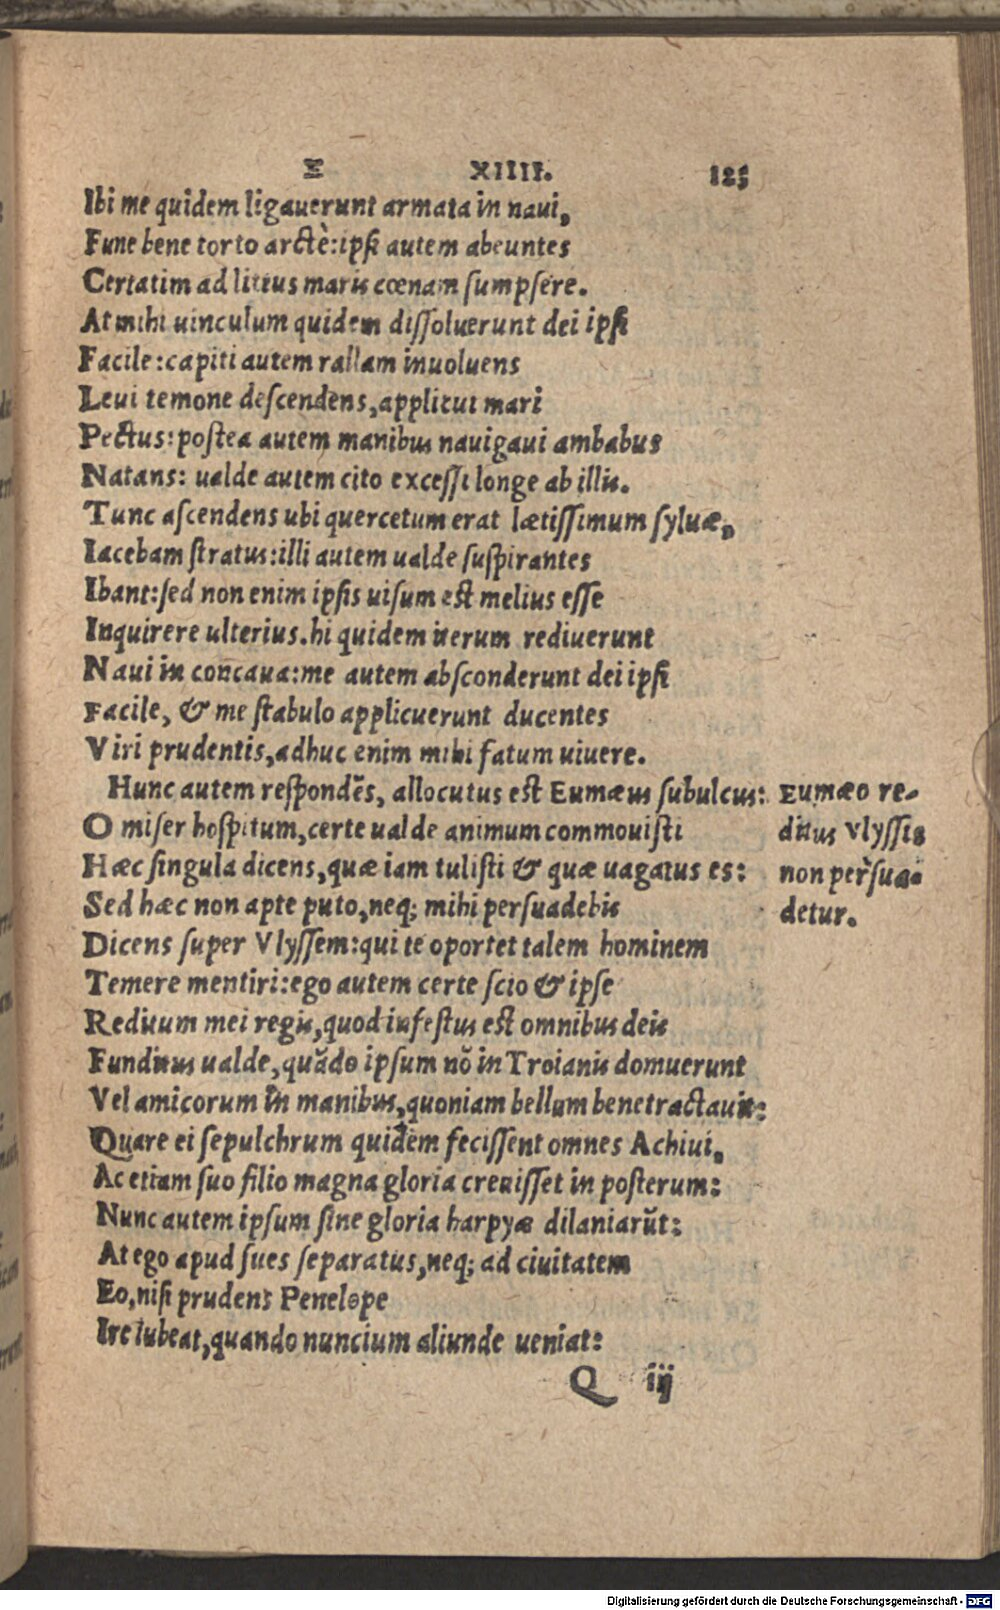 Ξ XIIII. 125
Ibi me quidem ligauerunt armata in naui,
Fune bene torto arctè: ipsi autem abeuntes
Certatim ad littus maris cœnam sumpsere.
At mihi uinculum quidem dissoluerunt dei ipsi
Facile: capiti autem rallam inuoluens
Leui temone descendens, applicui mari
Pectus: postea autem manibus nauigaui ambabus
Natans: ualde autem cito excessi longe ab illis.
Tunc ascendens ubi quercetum erat lætissimum syluæ,
Iacebam stratus: illi autem ualde suspirantes
Ibant: sed non enim ipsis uisum est melius esse
Inquirere ulterius. hi quidem iterum rediuerunt
Naui in concaua: me autem absconderunt dei ipsi
Facile, & me stabulo applicuerunt ducentes
Viri prudentis, adhuc enim mihi fatum uiuere.
Hunc autem respondẽs, allocutus est Eumæus subulcus:
O miser hospitum, certe ualde animum commouisti
Hæc singula dicens, quæ iam tulisti & quæ uagatus es:
Sed hæc non apte puto, neq; mihi persuadebis
Dicens super Vlyssem: qui te oportet talem hominem
Temere mentiri: ego autem certe scio & ipse
Reditum mei regis, quod infestus est omnibus deis
Funditus ualde, quãdo ipsum nõ in Troianis domuerunt
Vel amicorum in manibus, quoniam bellum bene tractauit:
Quare ei sepulchrum quidem fecissent omnes Achiui,
Ac etiam suo filio magna gloria creuisset in posterum:
Nunc autem ipsum sine gloria harpyæ dilaniarũt:
At ego apud sues separatus, neq; ad ciuitatem
Eo, nisi prudens Penelope
Ire iubeat, quando nuncium aliunde ueniat:
Eumæo re-
ditus Vlyssis
non persua-
detur.
Q iij
Digitalisierung gefördert durch die Deutsche Forschungsgemeinschaft - DFG